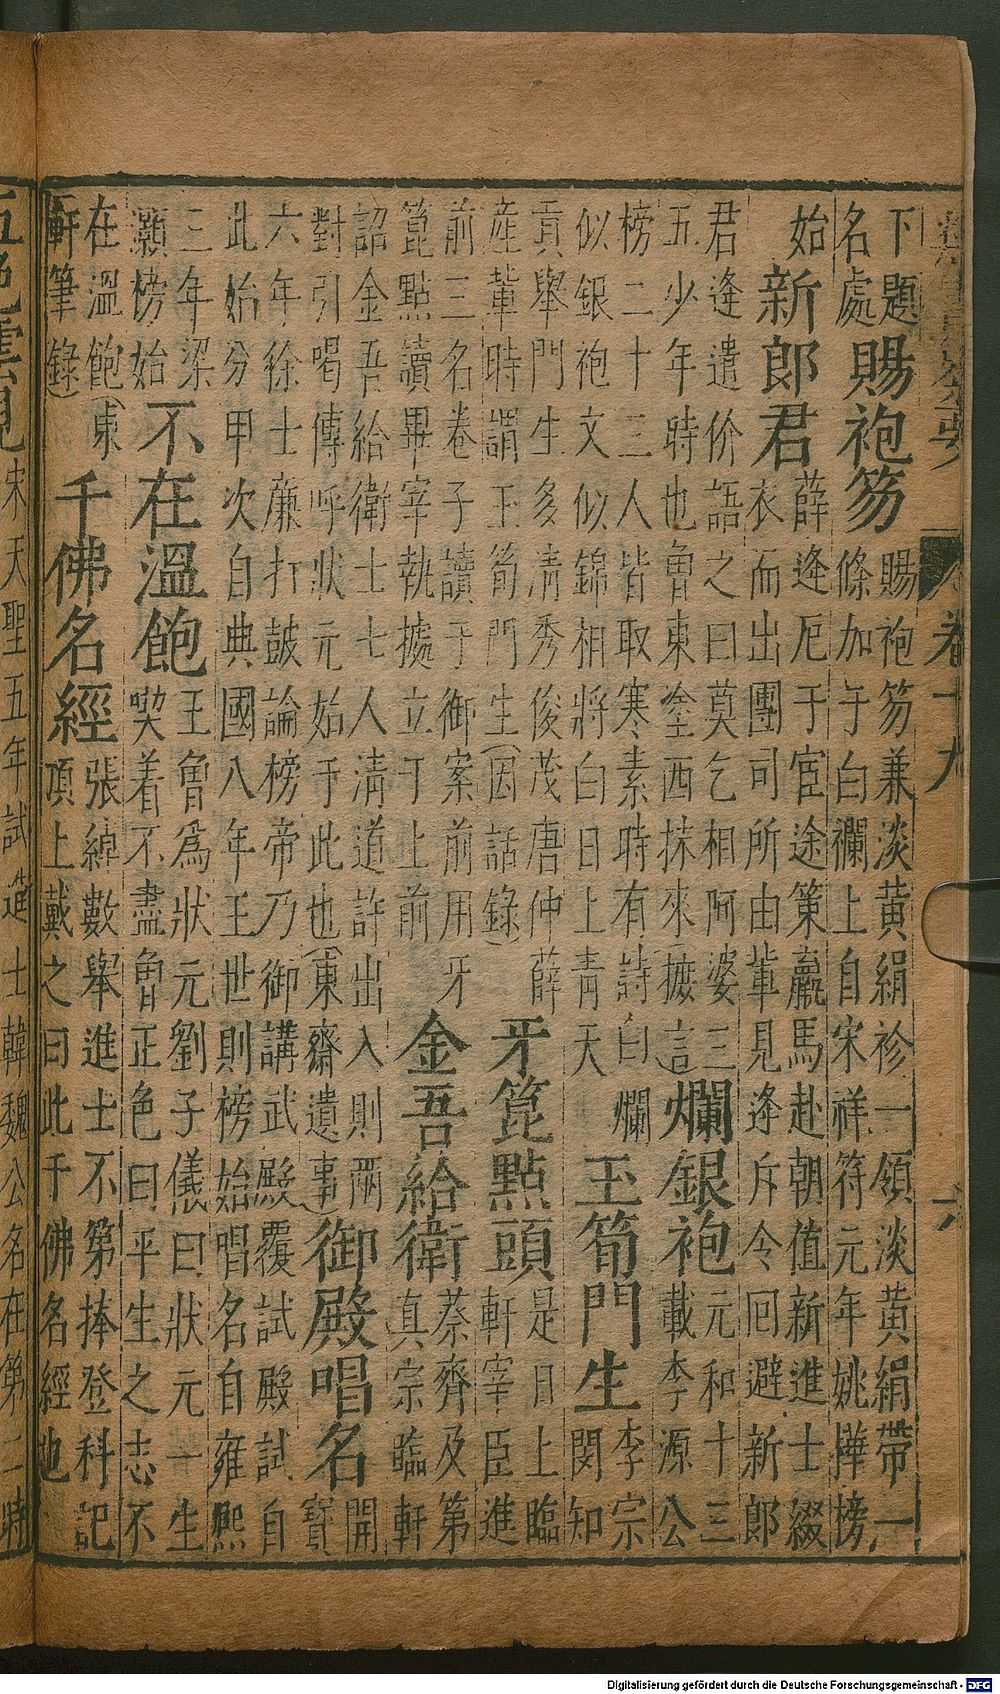 卷十九
六
下題
名處
賜袍笏
賜袍笏兼淡黃絹衫一領淡黃絹帶一
條加于白襴上自宋祥符元年姚曄榜
始
新郎君
薛逢厄于宦途策羸馬赴朝值新進士綴
衣而出團司所由輩見逢斥令回避新郎
君逢遣价語之曰莫乞相阿婆三
五少年時也魯東塗西抹來(摭言
爛銀袍
元和十三
載李源公
榜二十三人皆取寒素時有詩曰爛
似銀袍文似錦相將白日上青天
玉筍門生
李宗
閔知
貢舉門生多清秀俊茂唐仲薛
產輩時謂玉筍門生(因話錄)
牙箆點頭
是日上臨
軒宰臣進
前三名卷子讀于御案前用牙
箆點讀畢宰執擄立于上前
金吾給衛
蔡齊及第
真宗臨軒
詔金吾給衛士七人清道許出入則兩
對引喝傳呼狀元始于此也(東齋遺事)
御殿唱名
開
寶
六年徐士廉打鼓論榜帝乃御講武殿覆試殿試自
此始分甲次自典國八年王世則榜始唱名自雍熙
三年梁
灝榜始
不在溫飽
王魯為狀元劉子儀曰狀元一生
喫着不盡魯正色曰平生之志不
在溫飽(東
軒筆錄)
千佛名經
張綽數舉進士不第捧登科記
頂上戴之曰此千佛名經也
五色雲見
宋天聖五年試進士韓魏公名在第二時
Digitalisierung gefördert durch die Deutsche Forschungsgemeinschaft - DFG